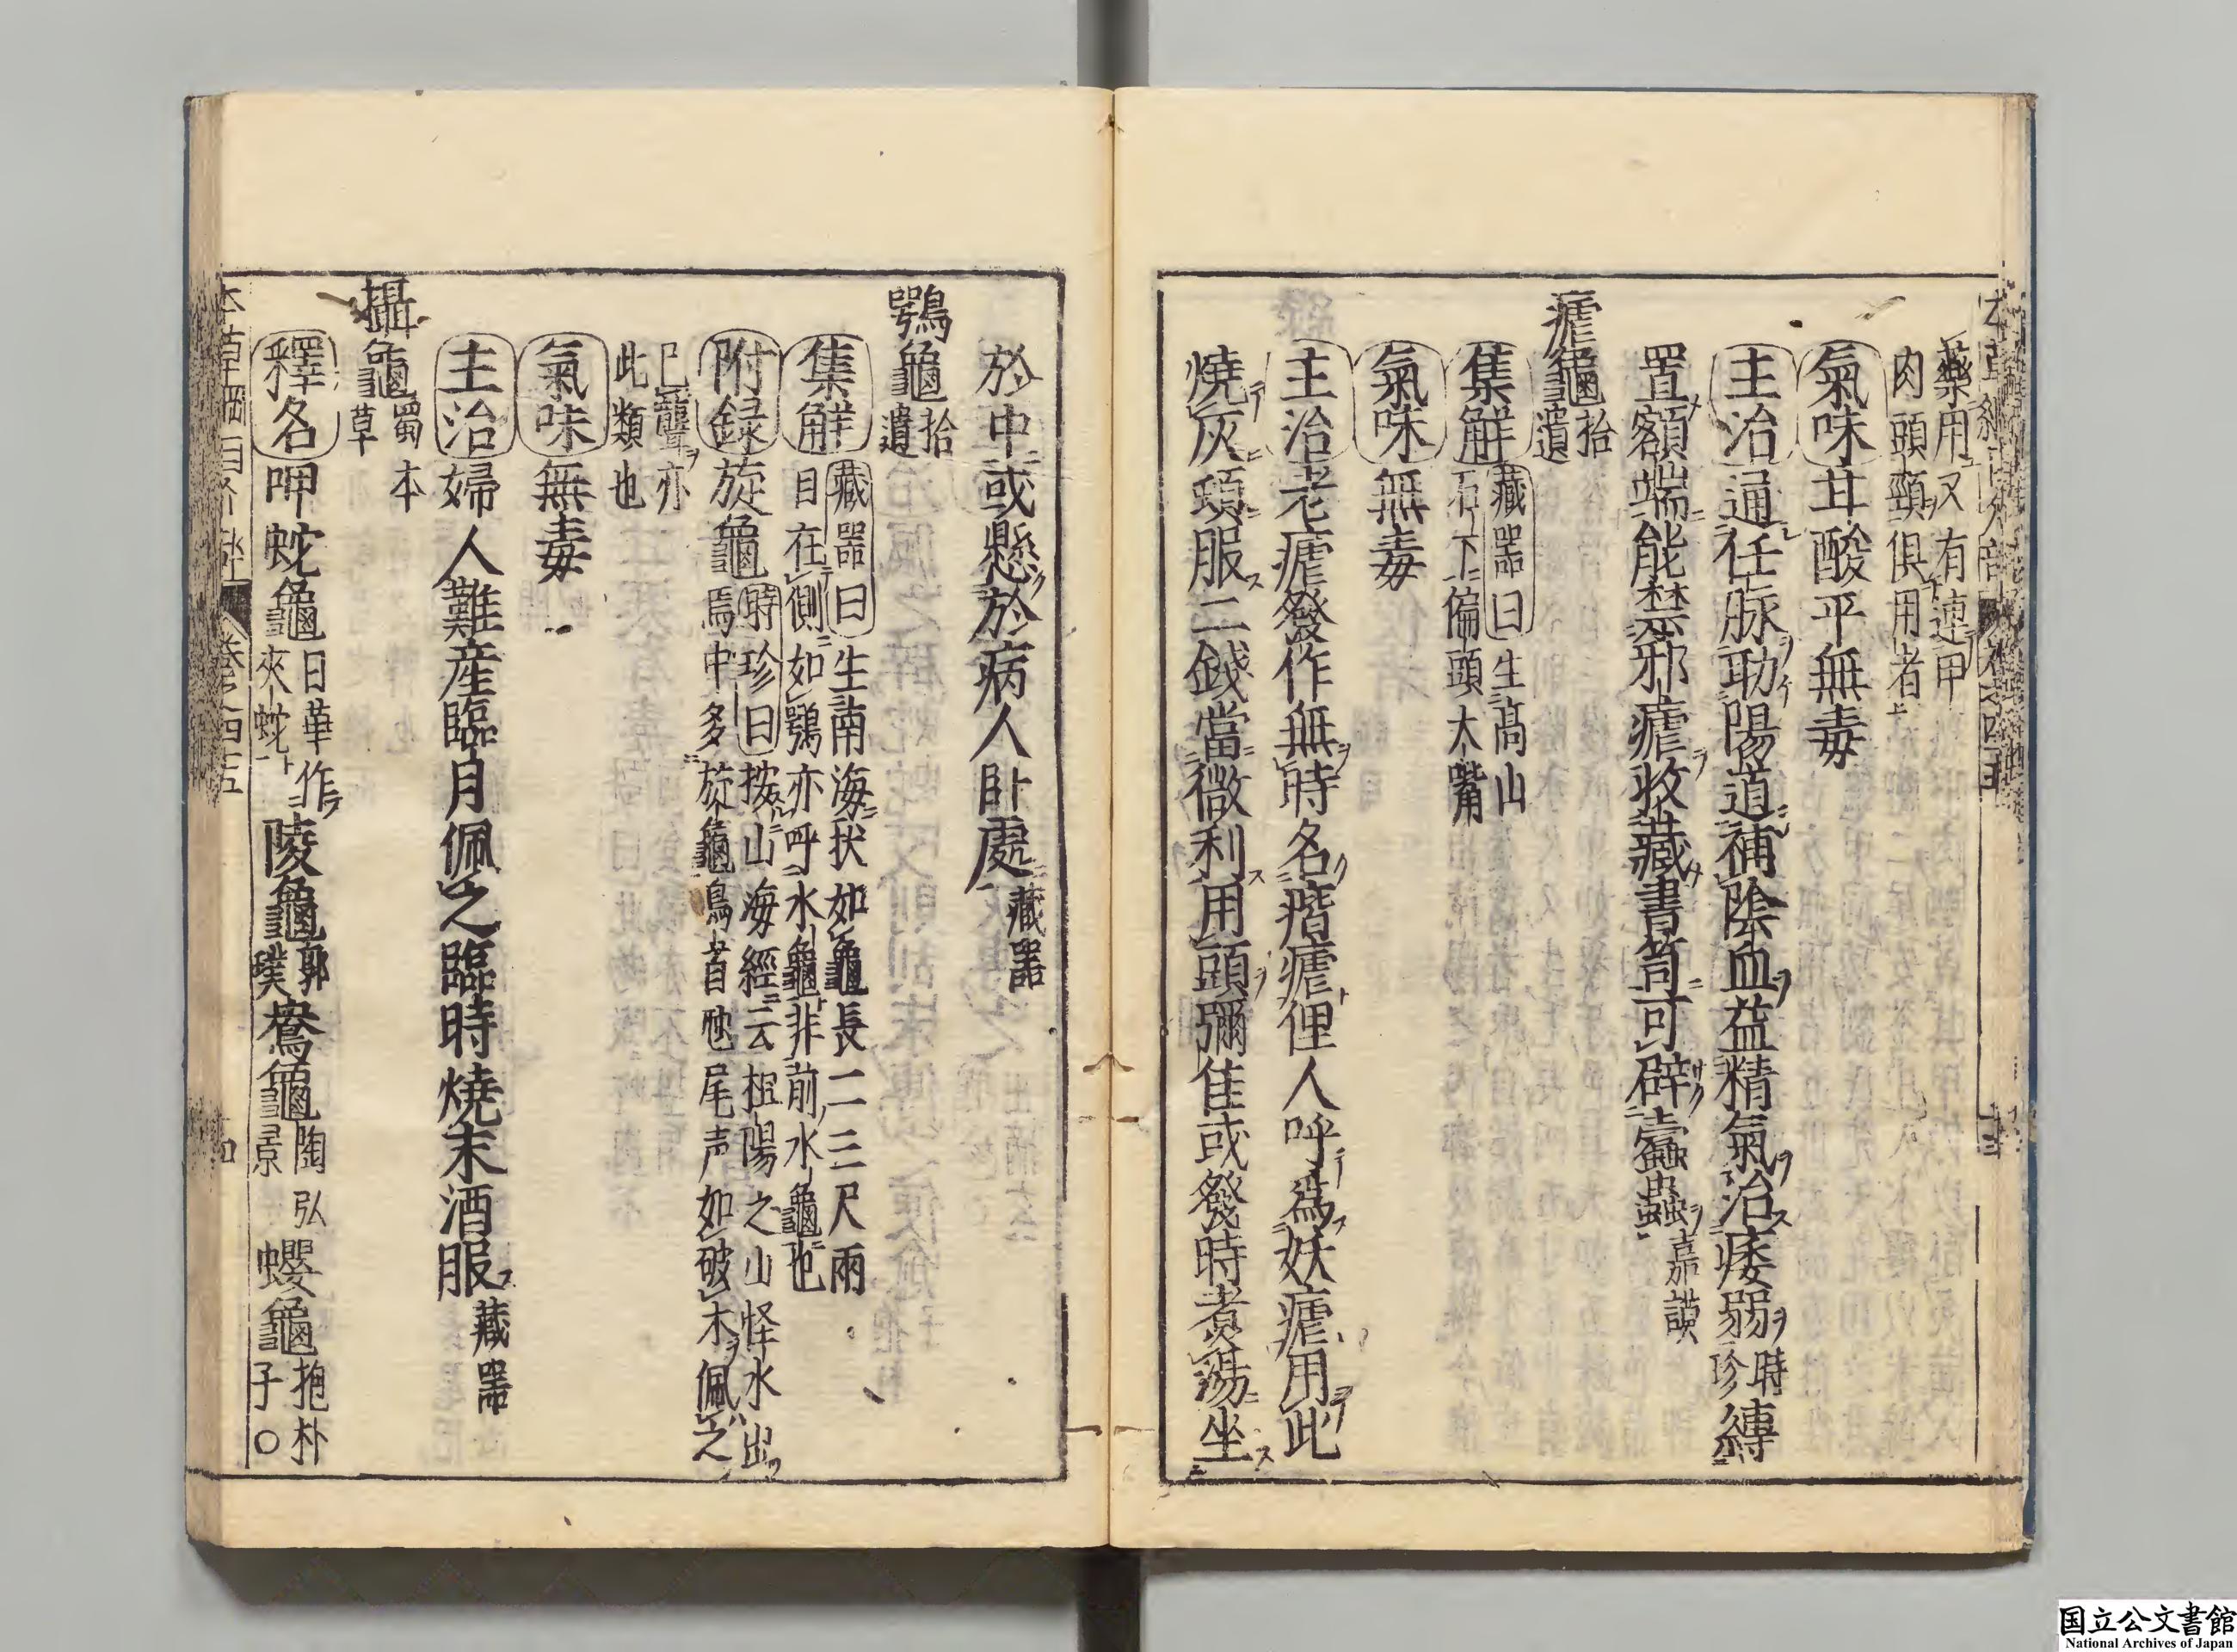 藥用又有連甲
肉頭頸俱用者
氣味甘酸平無毒
主治通任脉助陽道補陰血益精氣治痿弱時珍縳
置額端能禁邪瘧收藏書笥可辟蠹蟲嘉謨
瘧龜拾遺
集解藏器曰生高山
石下偏頭大嘴
氣味無毒
主治老瘧發作無時名瘖瘧俚人呼為妖瘧用此
燒灰頓服二錢當微利用頭彌佳或發時煮湯坐
於中或懸於病人卧處藏器
鶚龜拾遺
集解藏器曰生南海狀如龜長二三尺兩
目在側如鶚亦呼水龜非前水龜也
附録旋龜時珍曰按山海經云杻陽之山怪水出
焉中多旋龜鳥首虺尾声如破木佩之
已聾亦
此類也
氣味無毒
主治婦人難産臨月佩之臨時燒末酒服藏器
攝龜蜀本草
釋名呷蛇龜日華作夾蛇陵龜郭璞鴦龜陶弘景蠳龜抱朴子〇
本草綱目
卷之四五
国立公文書館
National Archives of Japan